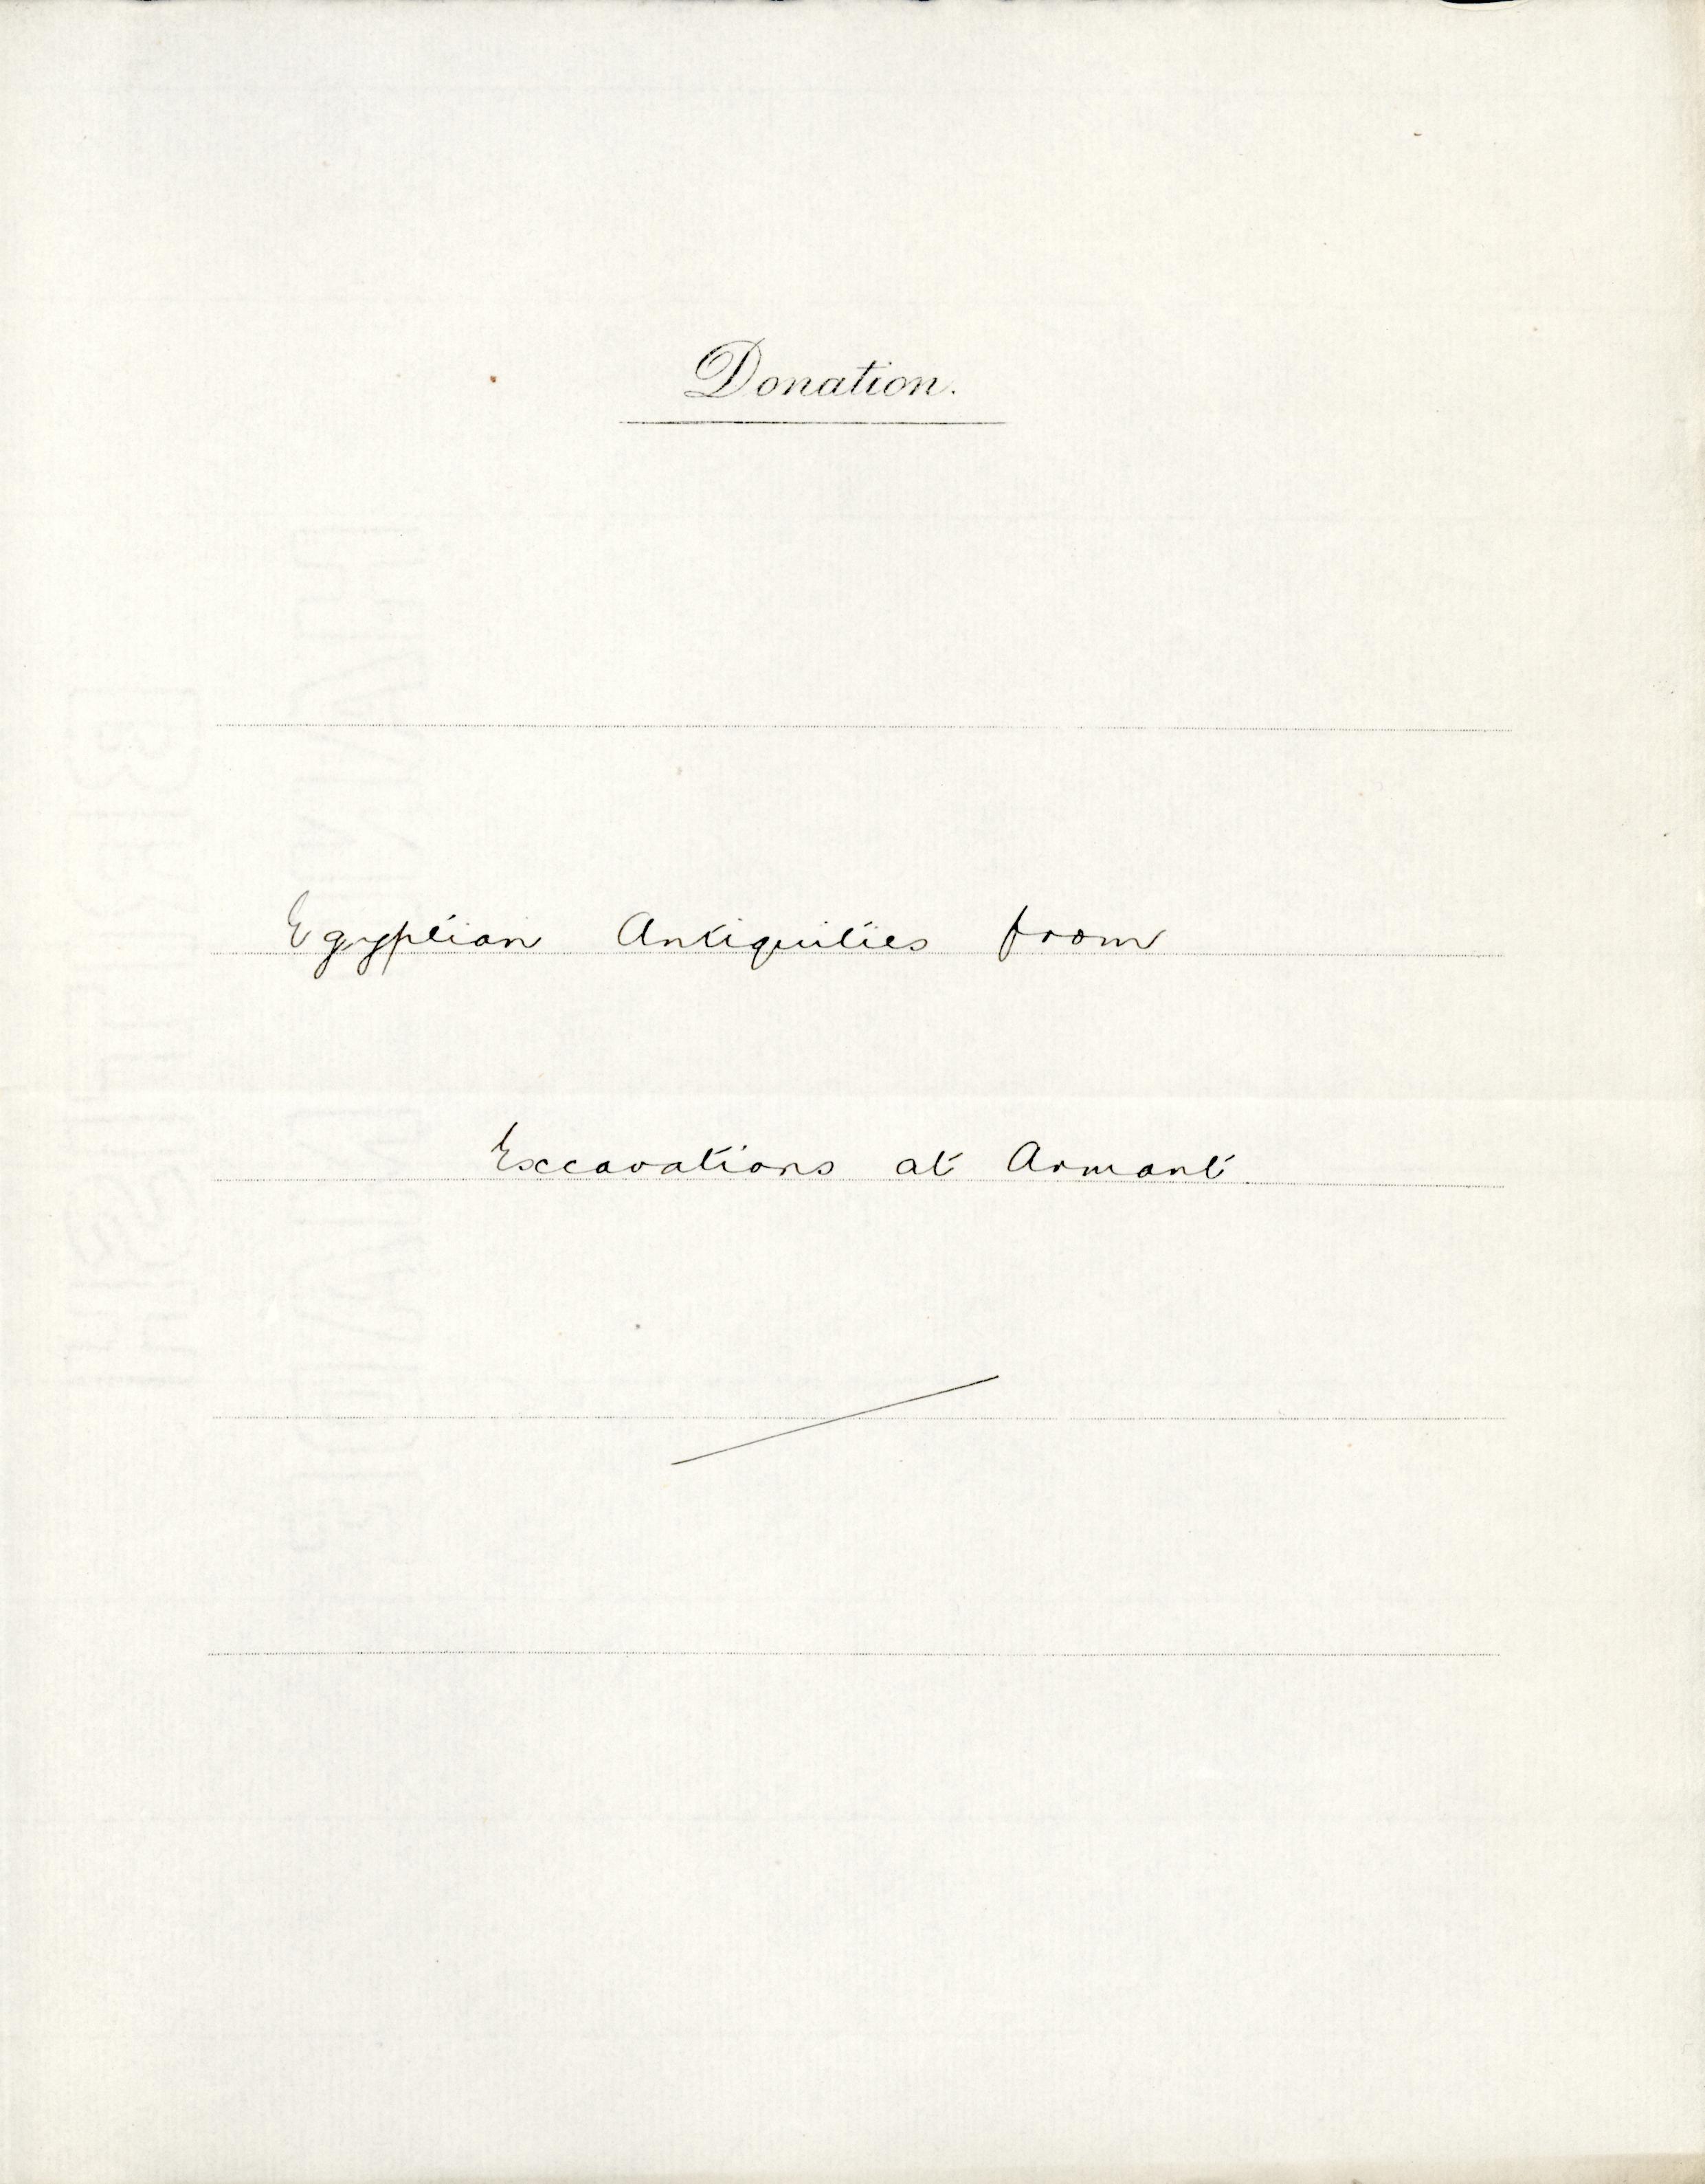 Donation.
Egyptian Antiquities from
Excavations at Armant